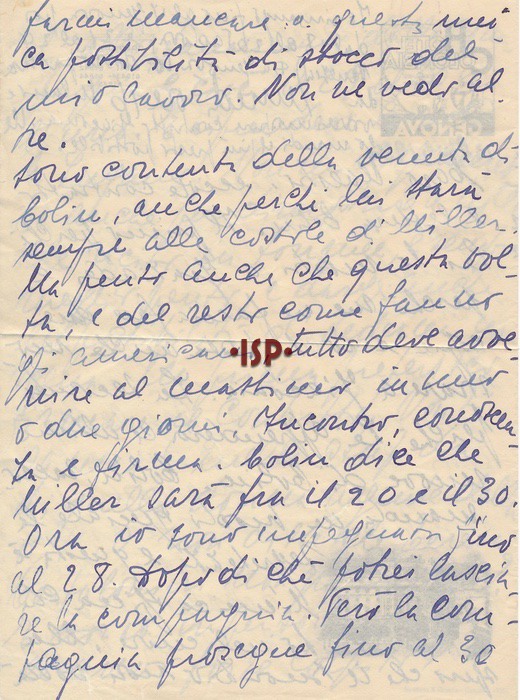 farmi mancare a questa uni
ca possibilità di stacco del
mio lavoro. Non ne vedo al
tre.
Sono contenta della venuta di
Colin, anche perché lui starà
sempre alle costole di Miller.
Ma penso anche che questa vol
ta, e del resto come fanno
gli americani tutto deve avve
nire al massimo in uno
o due giorni. Incontro, conoscen
za e firma. Colin dice che
Miller sarà fra il 20 e il 30.
Ora io sono impegnata fino
al 28. Dopo di che potrei lascia
re la compagnia. Però la com
pagnia prosegue fino al 30
•ISP•
GENOVA